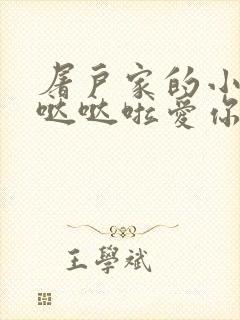 屠戶家的小
哒哒啦愛你
王學斌